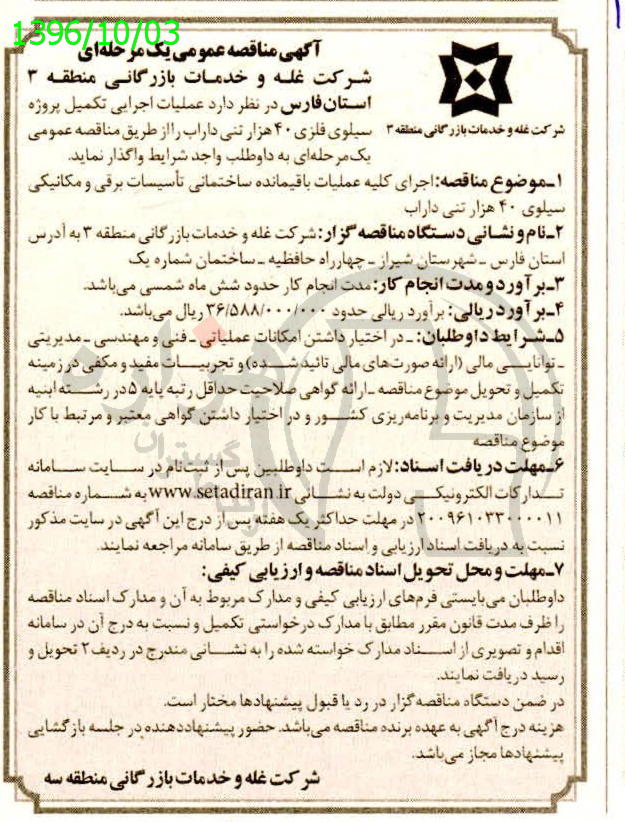 1396/10/03
آگهی مناقصه عمومی یک مرحله‌ای
شرکت غله و خدمات بازرگانی منطقه ۳
استان فارس در نظر دارد عملیات اجرایی تکمیل پروژه
سیلوی فلزی ۴۰ هزار تنی داراب را از طریق مناقصه عمومی
یک‌مرحله‌ای به داوطلب واجد شرایط واگذار نماید.
شرکت غله و خدمات بازرگانی منطقه ۳
۱ـ موضوع مناقصه: اجرای کلیه عملیات باقیمانده ساختمانی تأسیسات برقی و مکانیکی
سیلوی ۴۰ هزار تنی داراب
۲ـ نام و نشانی دستگاه مناقصه گزار: شرکت غله و خدمات بازرگانی منطقه ۳ به آدرس
استان فارس ـ شهرستان شیراز ـ چهارراه حافظیه ـ ساختمان شماره یک
۳ـ برآورد و مدت انجام کار: مدت انجام کار حدود شش ماه شمسی می‌باشد.
۴ـ برآورد ریالی: برآورد ریالی حدود ۳۶/۵۸۸/۰۰۰/۰۰۰ ریال می‌باشد.
۵ـ شرایط داوطلبان: ـ در اختیار داشتن امکانات عملیاتی ـ فنی و مهندسی ـ مدیریتی
ـ توانایی مالی (ارائه صورت‌های مالی تائید شده) و تجربیات مفید و مکفی در زمینه
تکمیل و تحویل موضوع مناقصه ـ ارائه گواهی صلاحیت حداقل رتبه پایه ۵ در رشته ابنیه
از سازمان مدیریت و برنامه‌ریزی کشور و در اختیار داشتن گواهی معتبر و مرتبط با کار
موضوع مناقصه
۶ـ مهلت دریافت اسناد: لازم است داوطلبین پس از ثبت‌نام در سایت سامانه
تدارکات الکترونیکی دولت به نشانی www.setadiran.ir به شماره مناقصه
۲۰۰۹۶۱۰۳۳۰۰۰۰۱۱ در مهلت حداکثر یک هفته پس از درج این آگهی در سایت مذکور
نسبت به دریافت اسناد ارزیابی و اسناد مناقصه از طریق سامانه مراجعه نمایند.
۷ـ مهلت و محل تحویل اسناد مناقصه و ارزیابی کیفی:
داوطلبان می‌بایستی فرم‌های ارزیابی کیفی و مدارک مربوط به آن و مدارک اسناد مناقصه
را ظرف مدت قانون مقرر مطابق با مدارک درخواستی تکمیل و نسبت به درج آن در سامانه
اقدام و تصویری از اسناد مدارک خواسته شده را به نشانی مندرج در ردیف ۲ تحویل و
رسید دریافت نمایند.
در ضمن دستگاه مناقصه‌گزار در رد یا قبول پیشنهادها مختار است.
هزینه درج آگهی به عهده برنده مناقصه می‌باشد. حضور پیشنهاددهنده در جلسه بازگشایی
پیشنهادها مجاز می‌باشد.
شرکت غله و خدمات بازرگانی منطقه سه